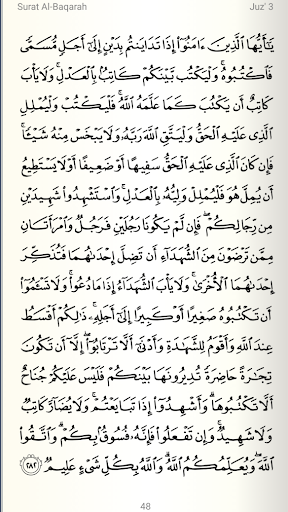 Surat Al-Baqarah Juz' 3
يَـٰٓأَيُّهَا ٱلَّذِينَ ءَامَنُوٓا۟ إِذَا تَدَايَنتُم بِدَيْنٍ إِلَىٰٓ أَجَلٍ مُّسَمًّى
فَٱكْتُبُوهُ ۚ وَلْيَكْتُب بَّيْنَكُمْ كَاتِبٌۢ بِٱلْعَدْلِ ۚ وَلَا يَأْبَ
كَاتِبٌ أَن يَكْتُبَ كَمَا عَلَّمَهُ ٱللَّهُ ۚ فَلْيَكْتُبْ وَلْيُمْلِلِ
ٱلَّذِى عَلَيْهِ ٱلْحَقُّ وَلْيَتَّقِ ٱللَّهَ رَبَّهُۥ وَلَا يَبْخَسْ مِنْهُ شَيْـًٔا ۚ
فَإِن كَانَ ٱلَّذِى عَلَيْهِ ٱلْحَقُّ سَفِيهًا أَوْ ضَعِيفًا أَوْ لَا يَسْتَطِيعُ
أَن يُمِلَّ هُوَ فَلْيُمْلِلْ وَلِيُّهُۥ بِٱلْعَدْلِ ۚ وَٱسْتَشْهِدُوا۟ شَهِيدَيْنِ
مِن رِّجَالِكُمْ ۖ فَإِن لَّمْ يَكُونَا رَجُلَيْنِ فَرَجُلٌ وَٱمْرَأَتَانِ
مِمَّن تَرْضَوْنَ مِنَ ٱلشُّهَدَآءِ أَن تَضِلَّ إِحْدَىٰهُمَا فَتُذَكِّرَ
إِحْدَىٰهُمَا ٱلْأُخْرَىٰ ۚ وَلَا يَأْبَ ٱلشُّهَدَآءُ إِذَا مَا دُعُوا۟ ۚ وَلَا تَسْـَٔمُوٓا۟
أَن تَكْتُبُوهُ صَغِيرًا أَوْ كَبِيرًا إِلَىٰٓ أَجَلِهِۦ ۚ ذَٰلِكُمْ أَقْسَطُ
عِندَ ٱللَّهِ وَأَقْوَمُ لِلشَّهَـٰدَةِ وَأَدْنَىٰٓ أَلَّا تَرْتَابُوٓا۟ ۖ إِلَّآ أَن تَكُونَ
تِجَـٰرَةً حَاضِرَةً تُدِيرُونَهَا بَيْنَكُمْ فَلَيْسَ عَلَيْكُمْ جُنَاحٌ
أَلَّا تَكْتُبُوهَا ۗ وَأَشْهِدُوٓا۟ إِذَا تَبَايَعْتُمْ ۚ وَلَا يُضَآرَّ كَاتِبٌ
وَلَا شَهِيدٌ ۚ وَإِن تَفْعَلُوا۟ فَإِنَّهُۥ فُسُوقٌۢ بِكُمْ ۗ وَٱتَّقُوا۟
ٱللَّهَ ۖ وَيُعَلِّمُكُمُ ٱللَّهُ ۗ وَٱللَّهُ بِكُلِّ شَىْءٍ عَلِيمٌ ۝٢٨٢
48